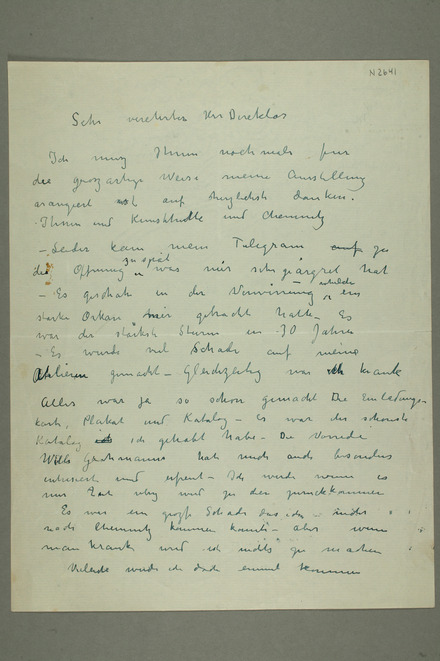 N 2641
Sehr verehrter Herr Direktor
Ich muss Ihnen nochmals für
die grossartige Weise meine Ausstellung
arangiert auf herzlichst danken.
Ihnen und Kunsthütte und Chemnitz
– Leider kam mein Telegram zu
die Öffnung zu spät was mir sehr geärgret hat
– Es geschah in der Verwirrung ein
starke Orkan hier gebracht hatte – Es
war der stärkste Sturm in 70 Jahren
– Es wurde viel Schade auf meine
Atelieren gemacht – Gleichzeitig war ich krank
Alles war ja so schön gemacht Die Einladungs
karte, Plakat und Katalog – Es war der schönste
Katalog ich gehabt habe – Die Vorrede
Wills Grohmanns hat mich auch besonders
intresiert und erfreut – Ich werde wenn es
mir Zeit wird zu der zurückkommen
Es war ein grosse Schade das ich – nicht
nach Chemnitz kommen konnte – aber wenn
man krank wird ist nichts zu machen
Vielleicht werde ich doch einmal kommen